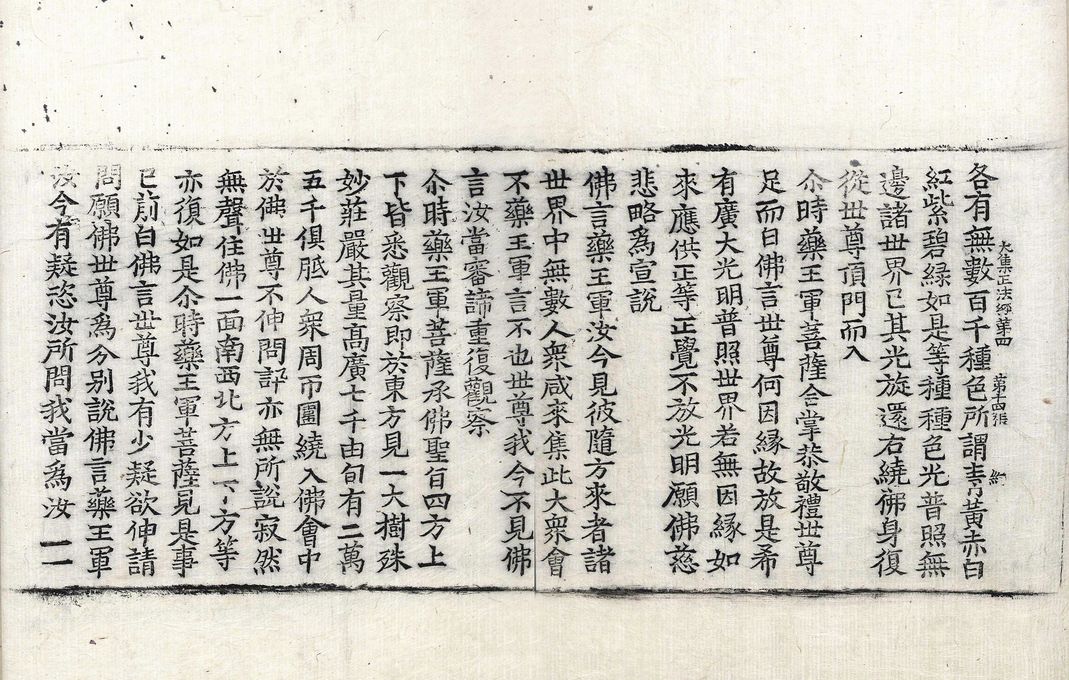 大集正法經第四 第十四張
各有無數百千種色所謂青黃赤白
紅紫碧綠如是等種種色光普照無
邊諸世界已其光旋還右繞佛身復
從世尊頂門而入
尒時藥王軍菩薩合掌恭敬禮世尊
足而白佛言世尊何因緣故放是希
有廣大光明普照世界若無因緣如
來應供正等正覺不放光明願佛慈
悲略為宣說
佛言藥王軍汝今見彼隨方來者諸
世界中無數人衆咸來集此大衆會
不藥王軍言不也世尊我今不見佛
言汝當審諦重復觀察
尒時藥王軍菩薩承佛聖旨四方上
下皆悉觀察即於東方見一大樹殊
妙莊嚴其量高廣七千由旬有二萬
五千俱胝人衆周帀圍繞入佛會中
於佛世尊不伸問訊亦無所說寂然
無聲住佛一面南西北方上下方等
亦復如是尒時藥王軍菩薩見是事
已前白佛言世尊我有少疑欲伸請
問願佛世尊為分別說佛言藥王軍
汝今有疑恣汝所問我當為汝一一